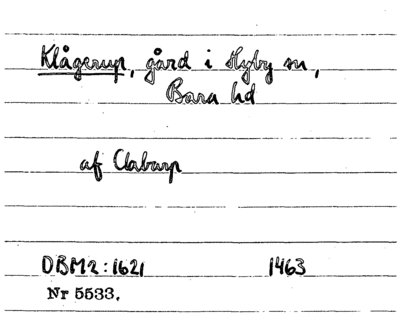 Klågerup, gård i Hyby sn,
Bara hd
af Clabarp
DBM2:1621 1463
Nr 5533.